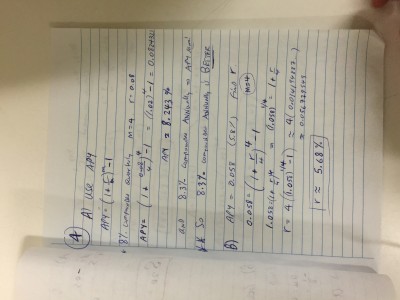 ④ A) USE APY
APY = (1 + r/m)^m - 1
* 8% compounded quarterly m = 4 r = 0.08
APY = (1 + 0.08/4)^4 - 1 = (1.02)^4 - 1 = 0.082432
APY ≈ 8.243%
and 8.3% compounded annually =
** So 8.3% compounded annually is BETTER
B) APY = 0.058 (5.8%) Find r.
0.058 = (1 + r/4)^4 - 1 m=4
1.058 = (1 + r/4)^4 ⇒ (1.058)^1/4 = 1 + r/4
r = 4((1.058)^1/4 - 1) ≈
r ≈ 5.68%